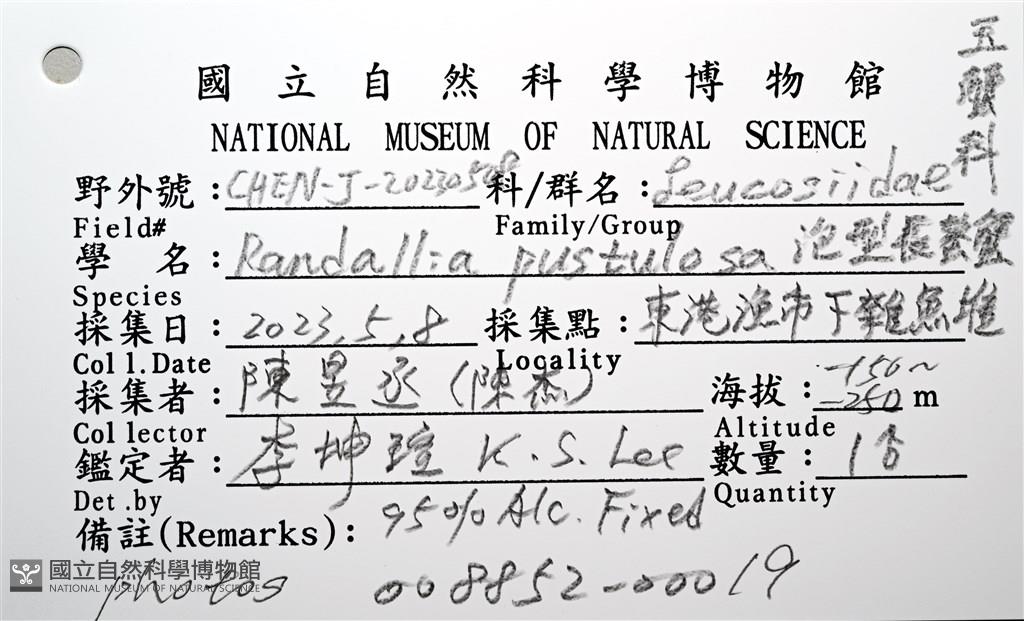 國立自然科學博物館
NATIONAL MUSEUM OF NATURAL SCIENCE
玉蟹科
野外號：CHEN-J-20230508 科/群名：Leucosiidae
Field# Family/Group
學 名：Randallia pustulosa 泡型長螯蟹
Species
採集日：2023.5.8 採集點：東港漁市下雜魚堆
Coll.Date Locality
採集者：陳昱丞(陳杰) 海拔：-150~-250 m
Collector Altitude
鑑定者：李坤瑄 K.S. Lee 數量：1♂
Det.by Quantity
備註(Remarks)：95% Alc. Fixed
photos 008852-00019
國立自然科學博物館
NATIONAL MUSEUM OF NATURAL SCIENCE